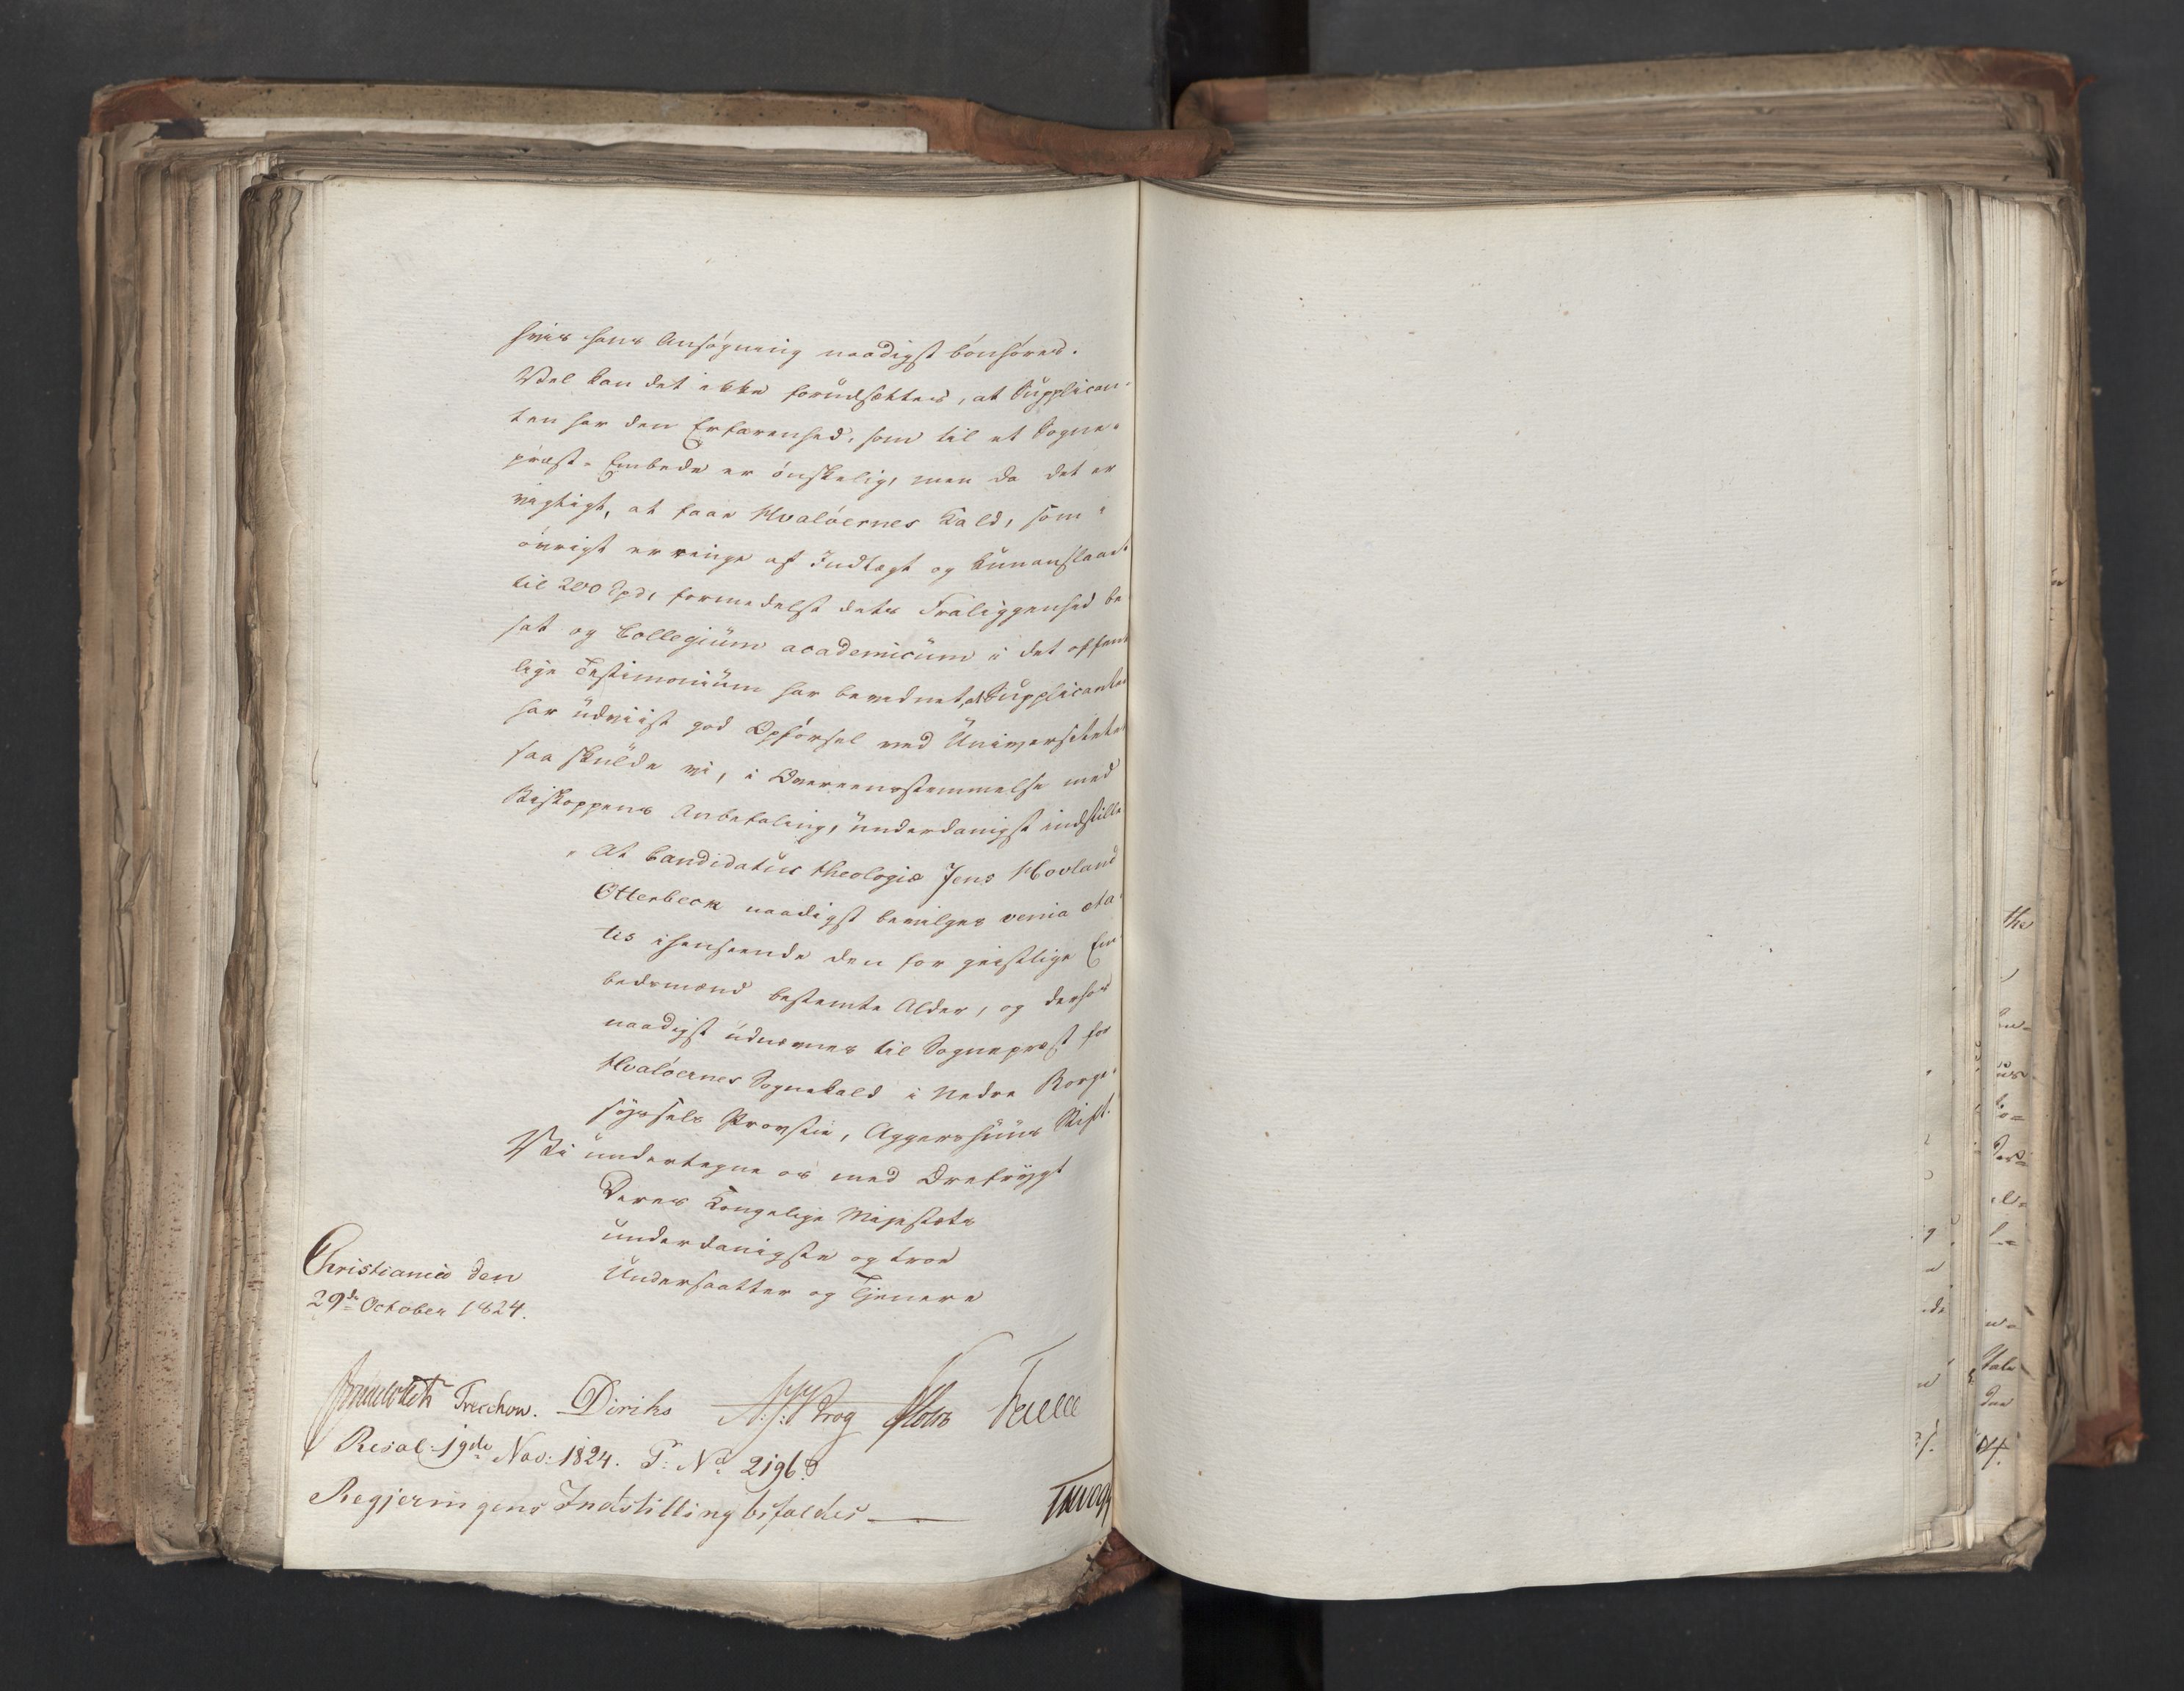 hvis hans Ansøgning naadigst bønhøres.
Vel kan det ikke forudsættes, at Supplican-
ten har den Erfarenhed, som til et Sogne-
præst-Embede er ønskelig, men da det er
vigtigt, at faae Hvaløernes Kald, som i
øvrigt er ringe af Indtægt og kun anslaaet
til 200 Spd, formedelst dets Fraliggenhed be
sat og Collegium academicum i det offent
lige Testimonium har bevidnet, at Supplicanten
har udviist god Opførsel ved Universitetet
saa skulde vi, i Overeensstemmelse med
Biskoppens Anbefaling, underdanigst indstille
"At Candidatus theologiæ Jens Hovland
Otterbeck naadigst bevilges venia æta-
tis i henseende den for geistlige Em
bedsmænd bestemte Alder, og derhos
naadigst udnævnes til Sognepræst for
Hvaløernes Sognekald i Nedre Borge-
syssels Provstie, Aggershuus Stift.
Vi undertegne os med Ærefrygt
Deres Kongelige Majestæts
underdanigste og troe
Undersaatter og Tjenere
Christiania den
29de October 1824.
Treschow. Diriks Krog
Resol: 19de Nov: 1824. P: No 2196.
Regjeringens Indstilling bifaldes